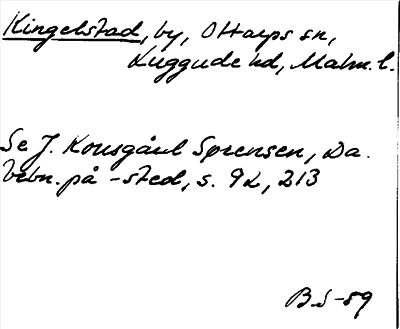 Kingelstad, by, Ottarps sn,
Luggude hd, Malm. l.
Se J. Kousgård Sørensen, Da.
bebn. på -sted, s. 92, 213
B.S-59